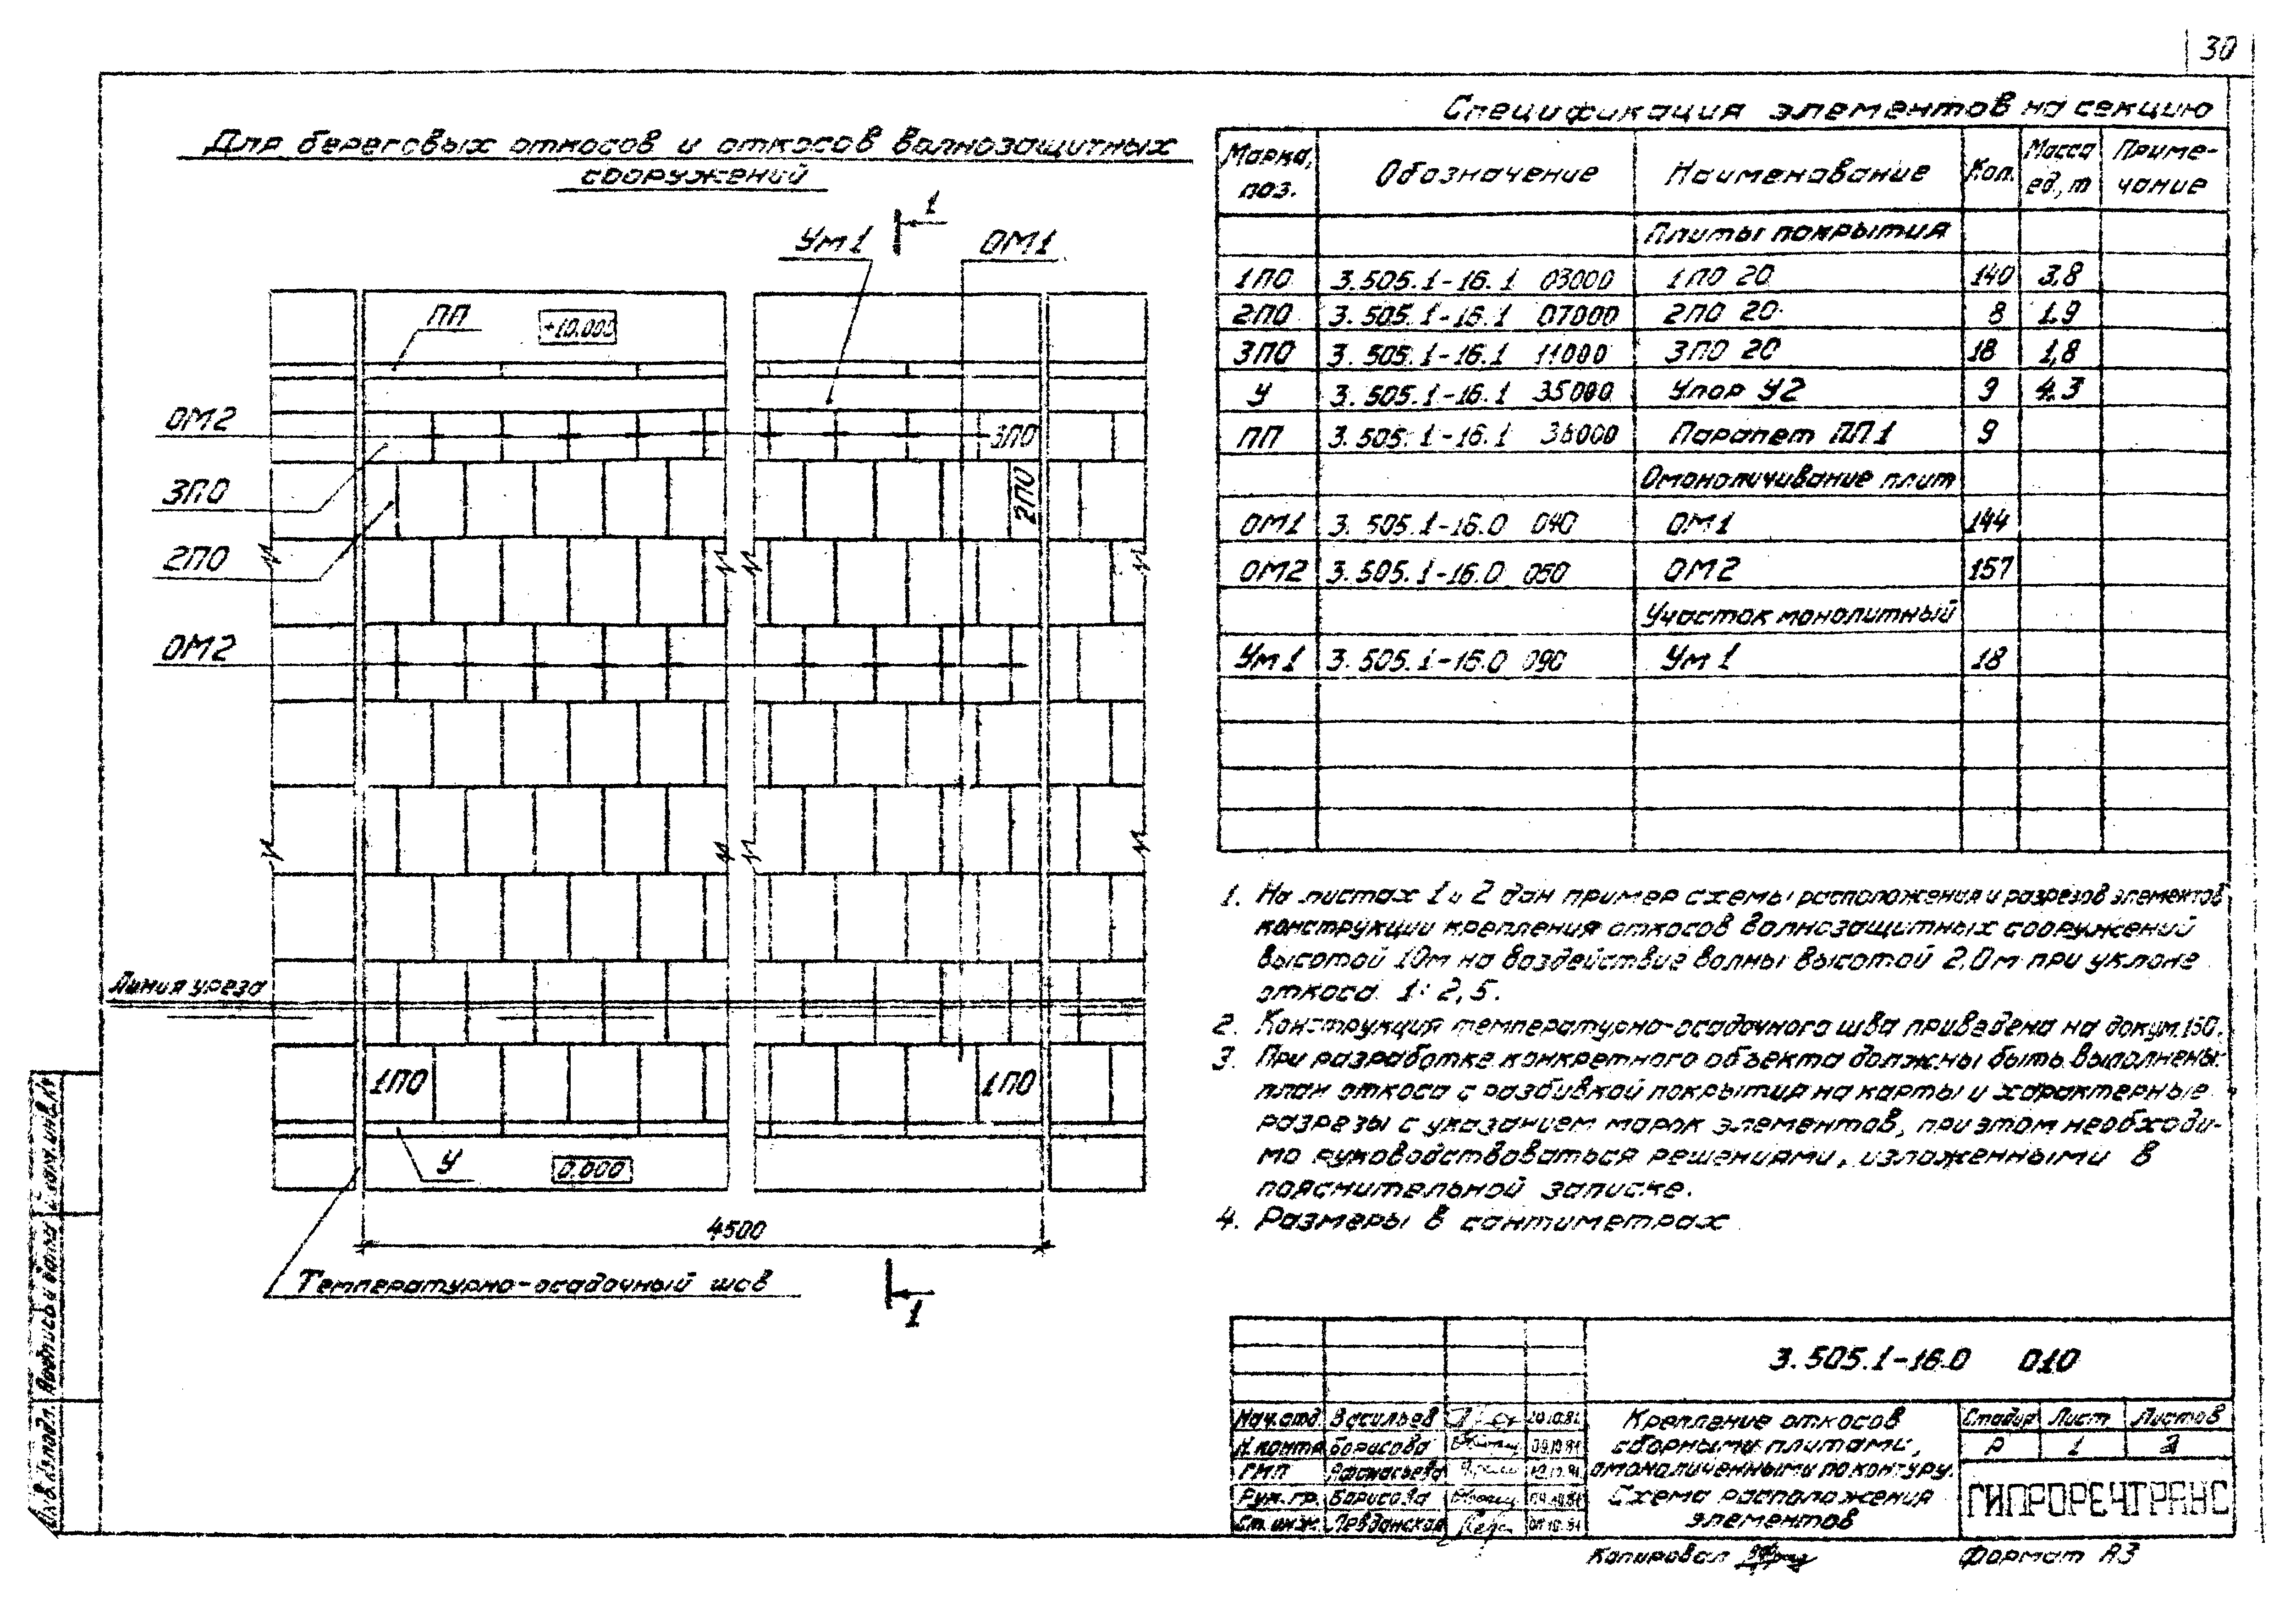 30
Для береговых откосов и откосов волнозащитных
сооружений
Спецификация элементов на секцию
Марка, поз. Обозначение Наименование Кол. Масса ед., т Приме-чание
Плиты покрытия
1ПО 3.505.1-16.1 03000 1ПО 20 140 3,8
2ПО 3.505.1-16.1 07000 2ПО 20 8 1,9
3ПО 3.505.1-16.1 11000 3ПО 20 18 1,8
У 3.505.1-16.1 35000 Упор У2 9 4,3
ПП 3.505.1-16.1 36000 Парапет ПП1 9
Омоноличивание плит
ОМ1 3.505.1-16.0 040 ОМ1 144
ОМ2 3.505.1-16.0 050 ОМ2 157
Участок монолитный
Ум1 3.505.1-16.0 090 Ум1 18
1
Ум1
ОМ1
ПП
+10.000
ОМ2
3ПО
3ПО
2ПО
2ПО
ОМ2
Линия уреза
1ПО
1ПО
У
0.000
4500
Температурно-осадочный шов
1
1. На листах 1 и 2 дан пример схемы расположения и разрезов элементов
конструкции крепления откосов волнозащитных сооружений
высотой 10м на воздействие волны высотой 2,0м при уклоне
откоса 1:2,5.
2. Конструкция температурно-осадочного шва приведена на докум.150.
3. При разработке конкретного объекта должны быть выполнены:
план откоса с разбивкой покрытия на карты и характерные
разрезы с указанием марок элементов, при этом необходи-
мо руководствоваться решениями, изложенными в
пояснительной записке.
4. Размеры в сантиметрах
3.505.1-16.0 010
Нач.отд. Васильев
Н.контр. Борисова
ГИП Афанасьева
Рук.гр. Борисова
Ст.инж. Левданская
Крепление откосов
сборными плитами,
омоноличенными по контуру.
Схема расположения
элементов
Стадия Лист Листов
Р 1 2
ГИПРОРЕЧТРАНС
Копировал
Формат А3
Инв.№ подл. Подпись и дата Взам.инв.№